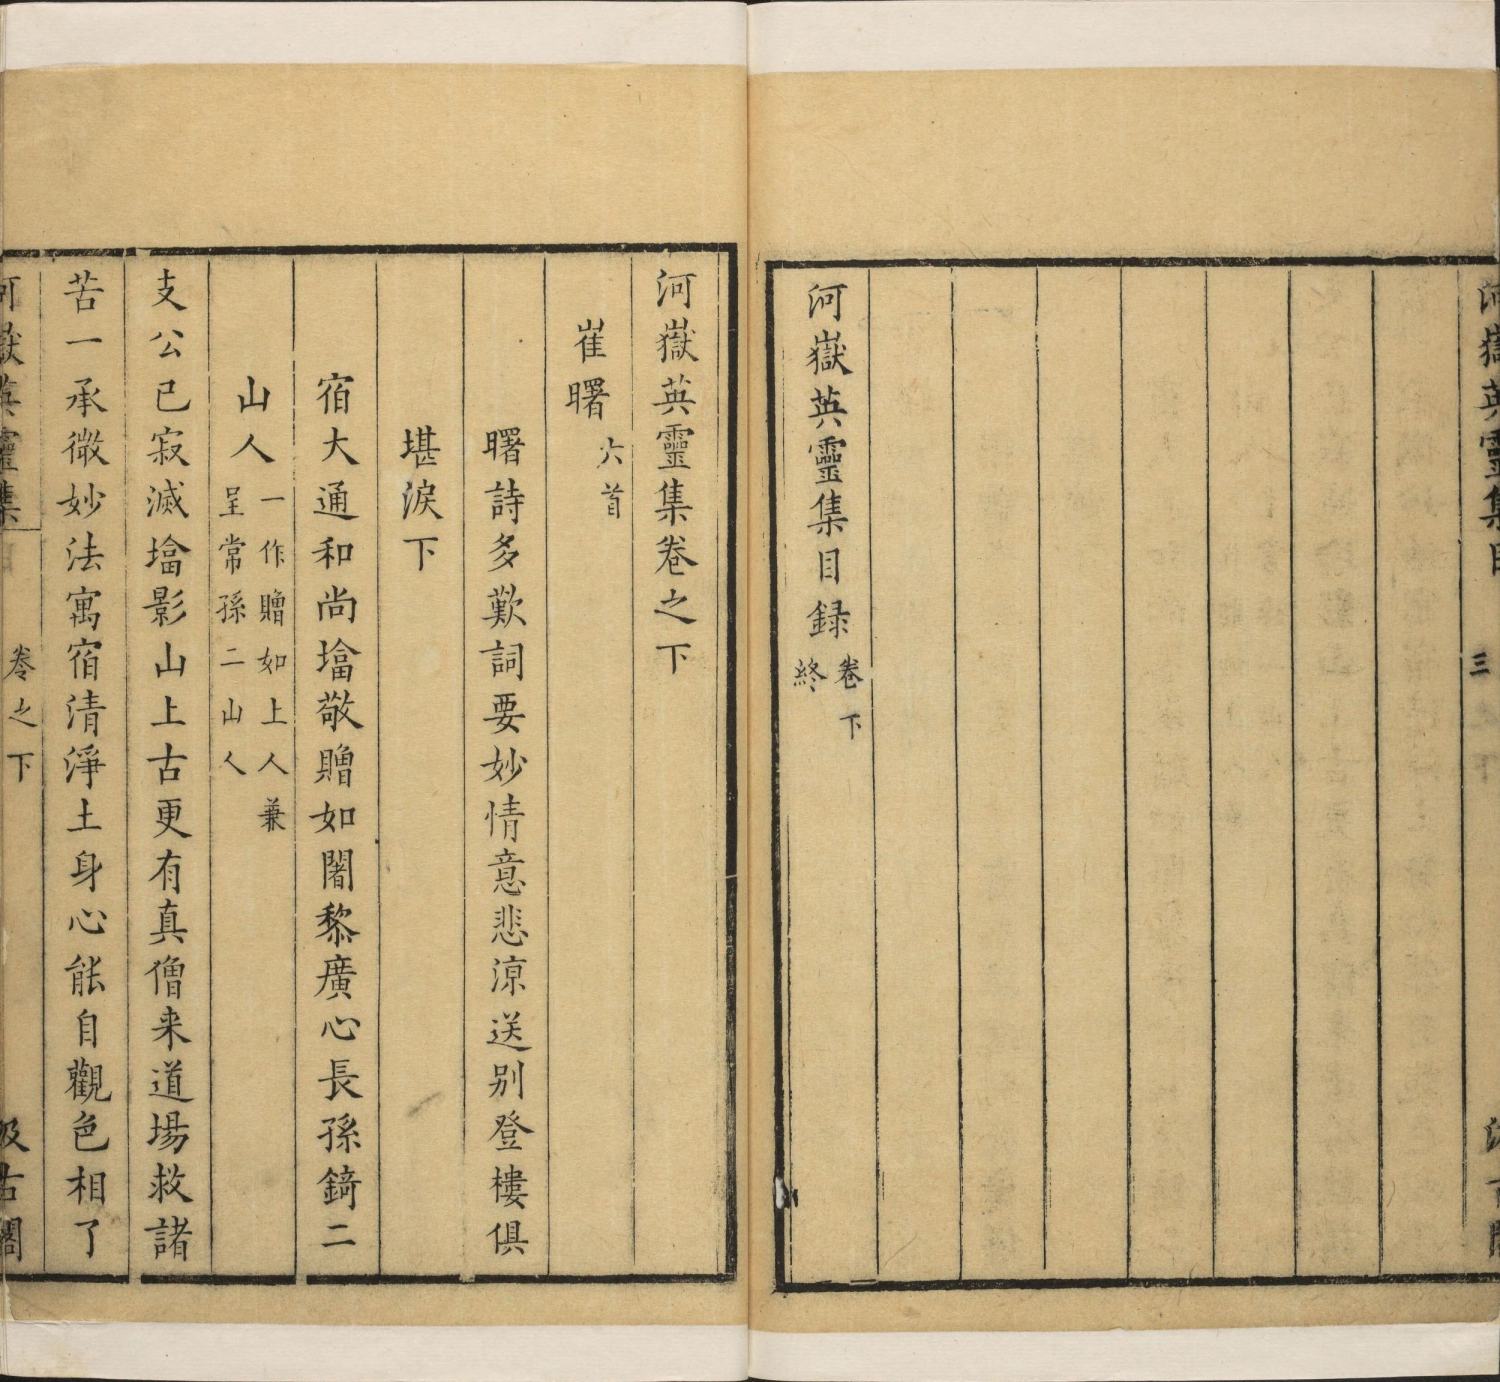 河嶽英靈集目 三
河嶽英靈集目録卷下終
河嶽英靈集卷之下
崔曙六首
曙詩多歎詞要妙情意悲涼送别登樓俱
堪淚下
宿大通和尚墖敬贈如闍黎廣心長孫錡二
山人一作贈如上人兼呈常孫二山人
支公已寂滅墖影山上古更有真僧来道場救諸
苦一承微妙法寓宿清淨土身心能自觀色相了
河嶽英靈集 卷之下 汲古閣